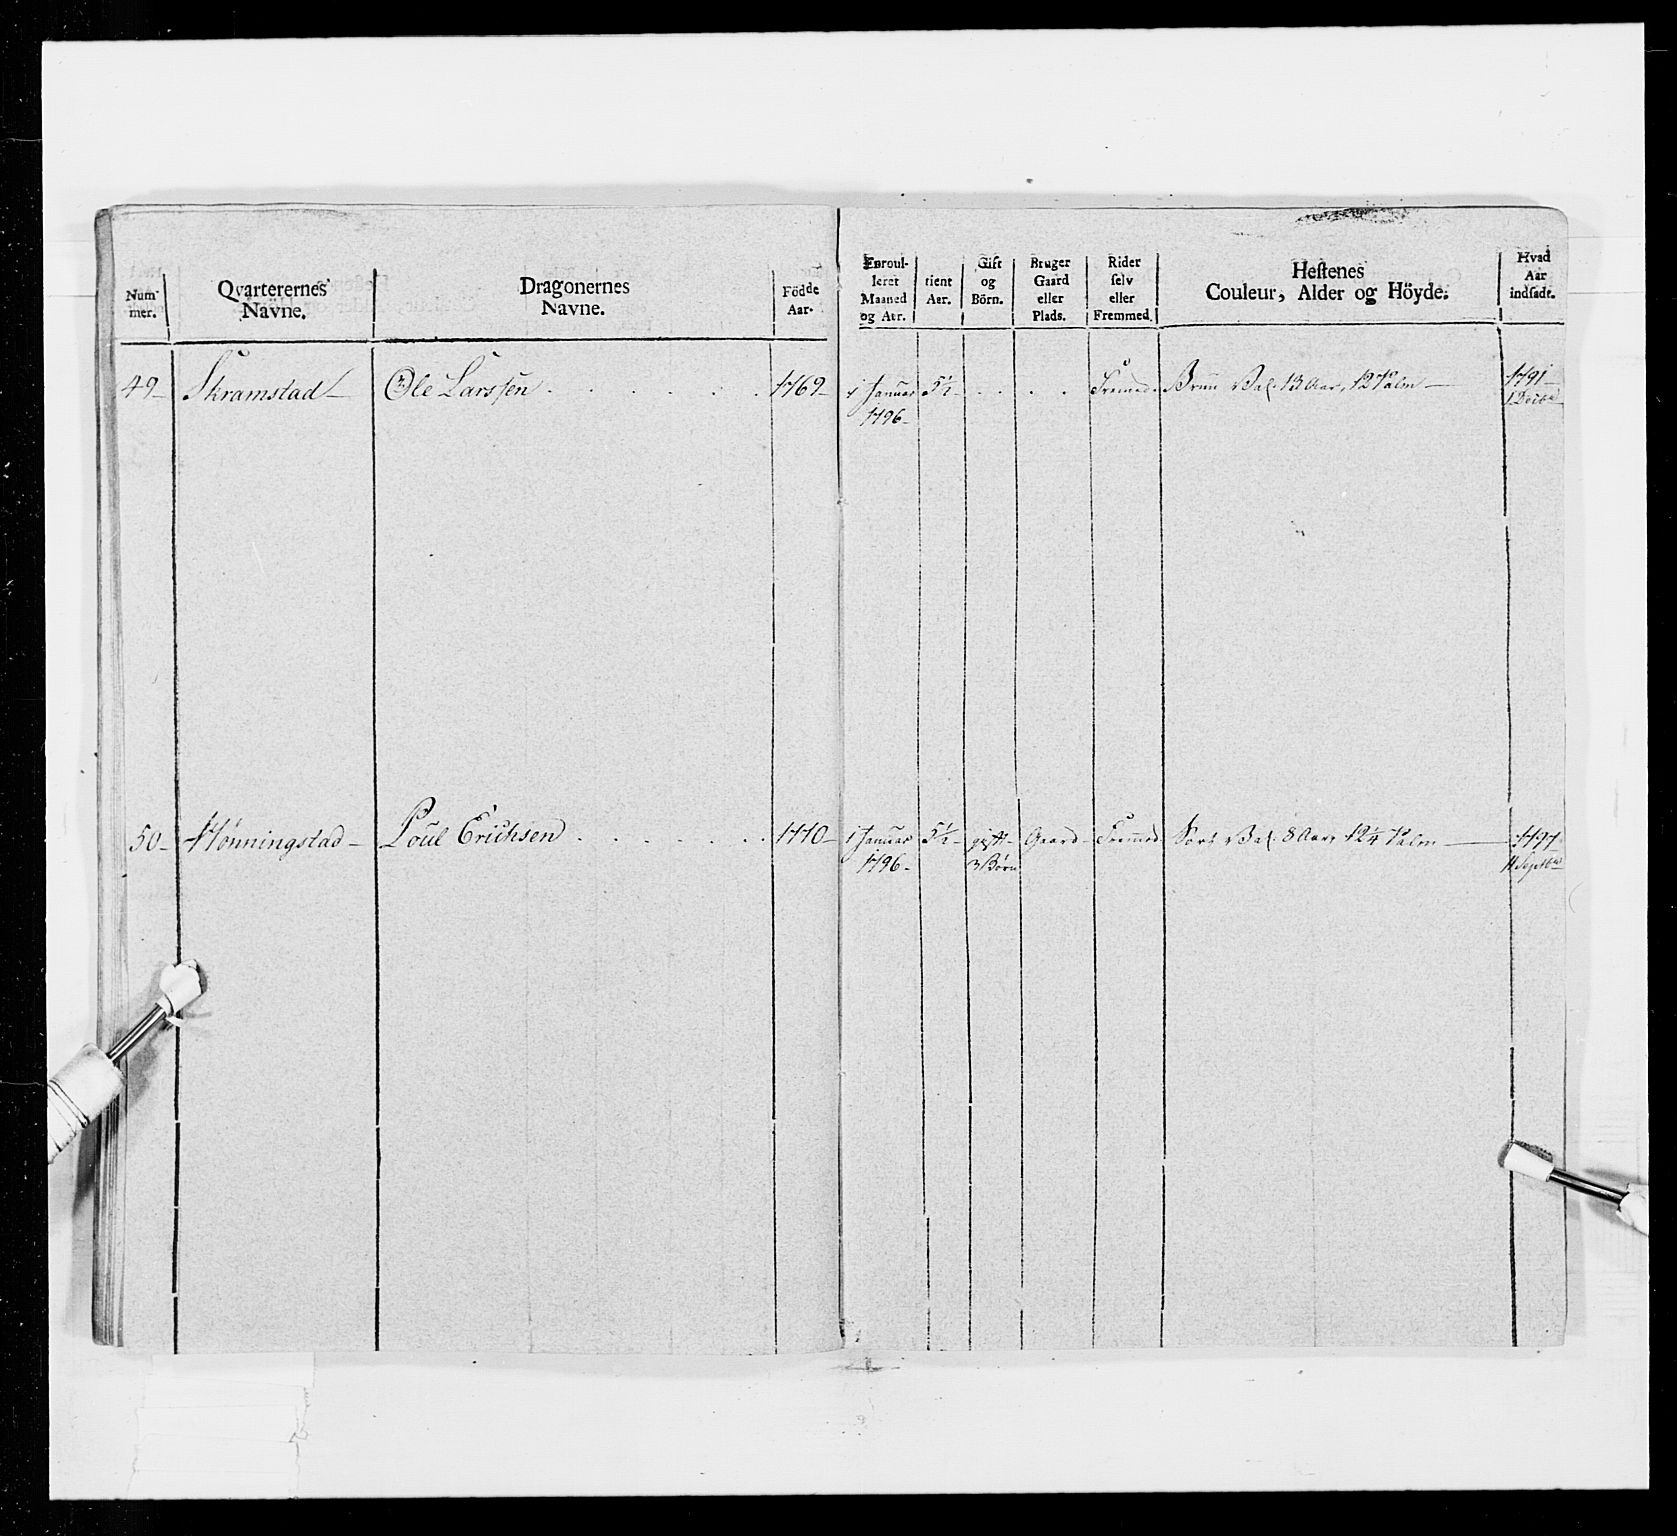 Num-
mer.
Qvarterernes
Navne.
Dragonernes
Navne.
Födde
Aar.
Enroul-
leret
Maaned
og Aar.
tient
Aar.
Gift
og
Börn.
Bruger
Gaard
eller
Plads.
Rider
selv
eller
Fremmed.
Hestenes
Couleur, Alder og Höyde.
Hvad
Aar
indsadt.
49 Skramstad Ole Larssen 1769 1 Januar 5½ Fremed Brun Val. 13 Aar, 12 Palm 1791
1796 1 Decbr
50 Hönningstad Poul Erichsen 1770 1 Januar 5½ gift Gaard Fremed Sort Val. 8 Aar, 12¼ Palm 1797
1796 3 Börn 11 Septbr